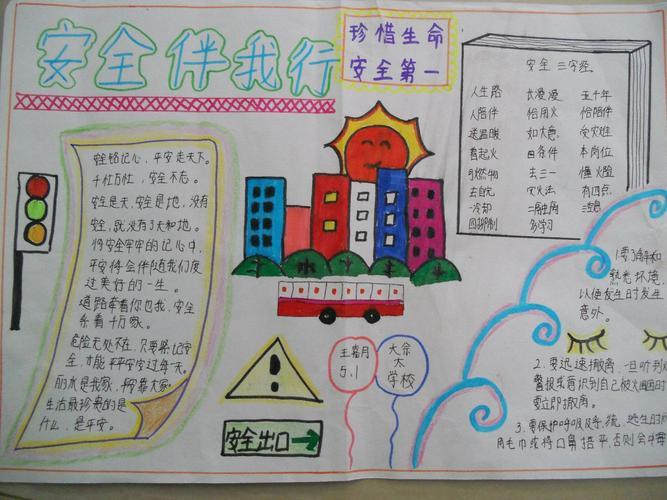 安全伴我行
珍惜生命
安全第一
安全铭记心，平安走天下。
千忙万忙，安全不忘。
安全是天，安全是地，没有
安全，就没有了天和地。
将安全牢牢的记心中，
平安将会伴随我们度
过美好的一生。
道路牵着你他我，安全
系着千万家。
危险无处不在，只要将记安
全，才能平平安安过每一天。
生活最珍贵的是
什么，是平安。
安全出口
王 月
5.1
学校
安全三字经
人生路 长漫漫 五千年
人陪伴 恰用火 恰陪伴
送温暖 如大意 受灾难
着起火 四条件 本岗位
燃物 去三一 懂火险
去自完 灾火法 有四点
冷却
四抑制 多学习
1.要了解和
熟光环境，
以便发生时发生
意外。
2.要迅速撤离，一旦听到
警报或意识到自己被火围困时
要立即撤离。
3.要保护呼吸系统，逃生时
用毛巾或将口鼻捂平，否则会中毒